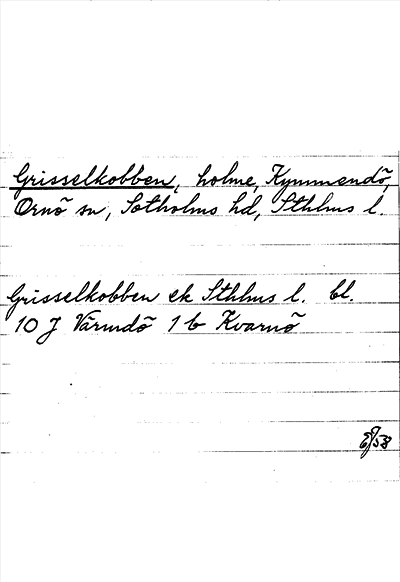 Grisselkobben, holme, Kymmendö,
Ornö sn, Sotholms hd, Sthlms l.
Grisselkobben ek Sthlms l. bl.
10 J Värmdö 1 b Kvarnö